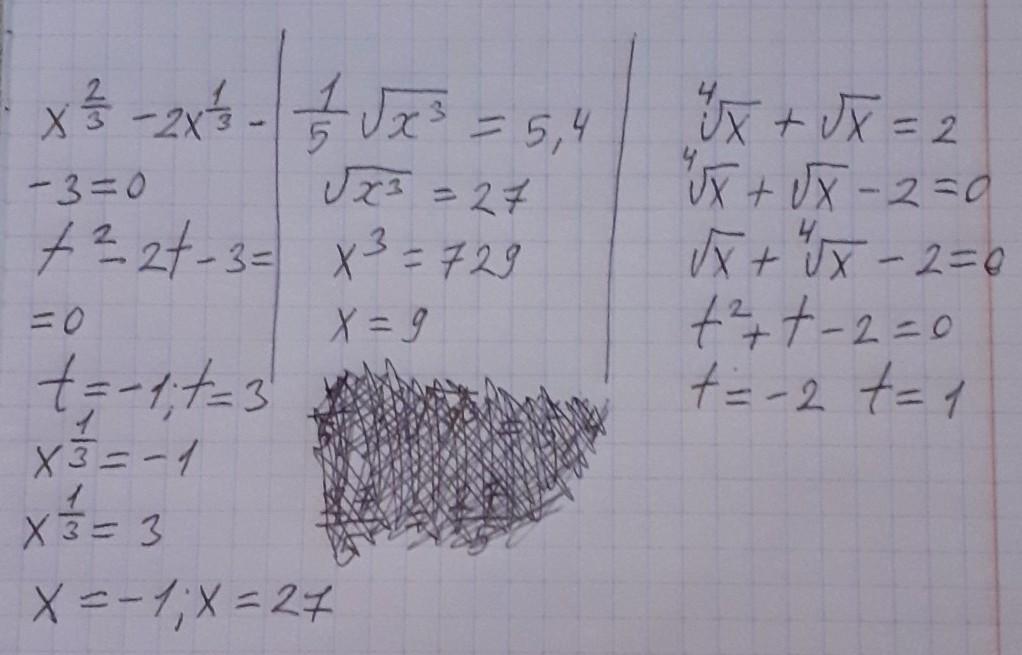 x^{2/3} - 2x^{1/3} -
- 3 = 0
t² - 2t - 3 =
= 0
t = -1; t = 3
x^{1/3} = -1
x^{1/3} = 3
x = -1; x = 27
1/5 √x³ = 5,4
√x³ = 27
x³ = 729
x = 9
⁴√x + √x = 2
⁴√x + √x - 2 = 0
√x + ⁴√x - 2 = 0
t² + t - 2 = 0
t = -2 t = 1